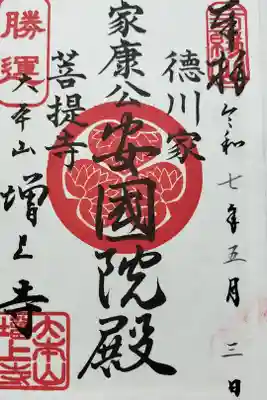 奉拝
令和七年五月三日
徳川家
安國院殿
家康公
菩提寺
勝運
大本山
増上寺
大本山
増上寺